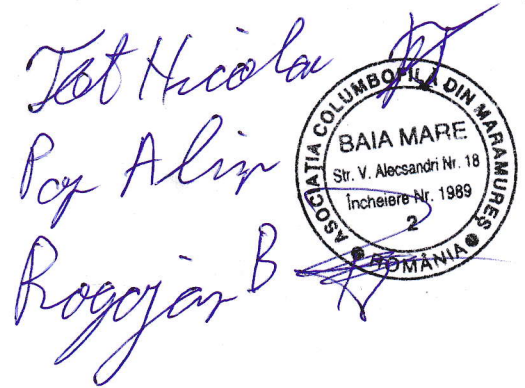 Tot Nicolae
Pop Alin
Rogojan B
ASOCIAȚIA COLUMBOFILĂ DIN MARAMUREȘ
BAIA MARE
Str. V. Alecsandri Nr. 18
Încheiere Nr. 1989
2
ROMÂNIA